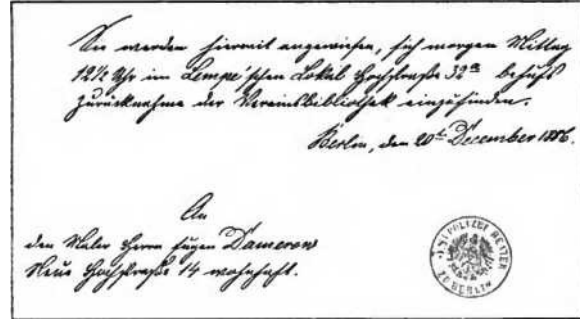 Sie werden hiermit angewiesen, sich morgen Mittag
12½ Uhr im Lempe'schen Lokal Hochstraße 32ᵃ behufs
Zurücknahme der Vereinsbibliothek einzufinden.
Berlin, den 20ᵗ December 1886.
An
den Maler Herrn Eugen Damerow
Neue Hochstraße 14 wohnhaft.
ZU BERLIN